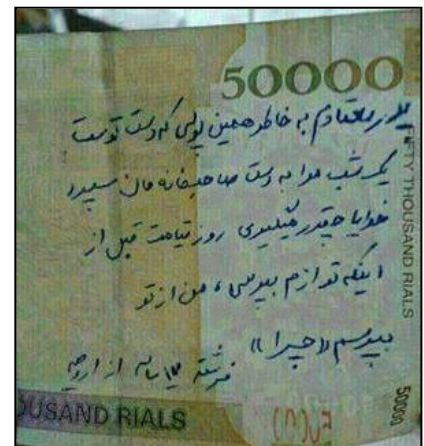 50000
پدر معتادم به خاطر همین پولی که دست توست
یک شب مرا به دست صاحبخانه مان سپرد
خدایا چقدر میگیری روز قیامت قبل از
اینکه تو ازم بپرسی، من از تو
بپرسم «چرا»
فرشته ۱۲ ساله از ارومیه
FIFTY THOUSAND RIALS
50000
OUSAND RIALS